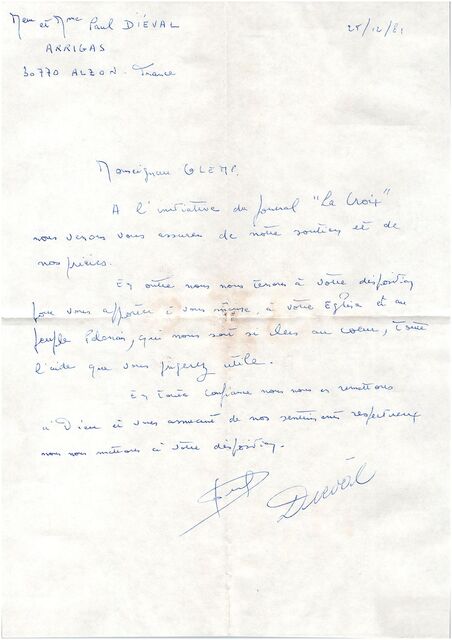 Mr et Mme Paul DIÉVAL
25/12/81
ARRIGAS
30770 ALZON - France
Monseigneur GLEMP.
A l'initiative du journal "La Croix"
nous venons vous assurer de notre soutien et de
nos prières.
En outre nous nous tenons à votre disposition
pour vous apporter à vous même, à votre Eglise et au
peuple Polonais, qui nous sont si chers au coeur, toute
l'aide que vous jugerez utile.
En toute confiance nous nous en remettons
à Dieu et vous assurant de nos sentiments respectueux
nous nous mettons à votre disposition.
Diéval